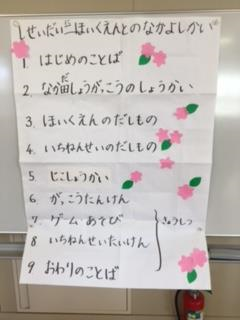 しせいだい二ほいくえんとのなかよしかい
1. はじめのことば
2. なか田しょうがっこうのしょうかい
3. ほいくえんのだしもの
4. いちねんせいのだしもの
5. じこしょうかい
6. がっこうたんけん
7. ゲームあそび
8 いちねんせいたいけん
9 おわりのことば
きょうしつ